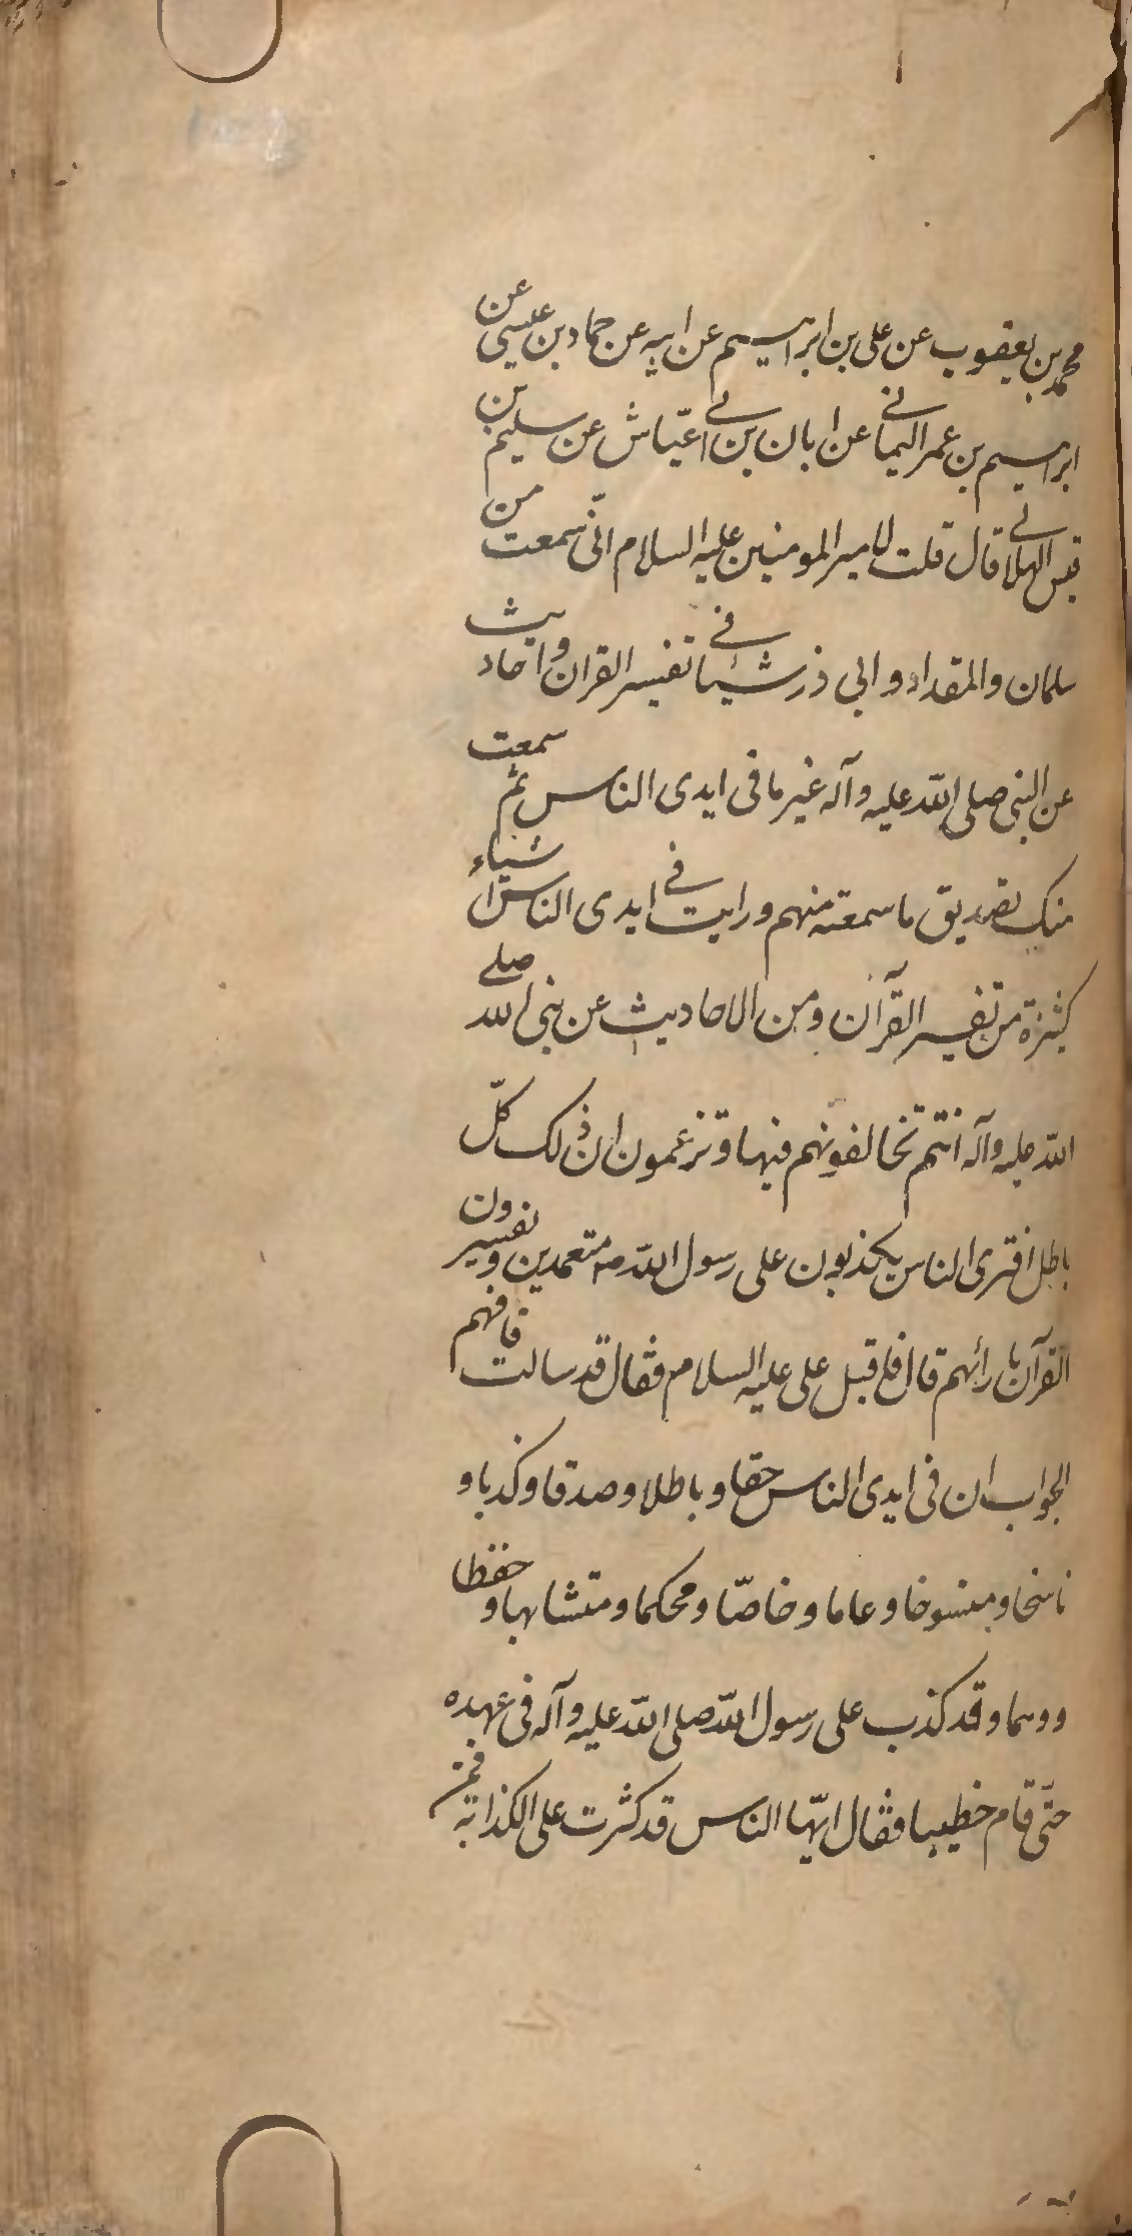 محمد بن يعقوب عن على بن ابراهيم عن ابيه عن حماد بن عيسى عن
ابراهيم بن عمر اليمانى عن ابان بن ابى عيّاش عن سليم بن
قيس الهلالى قال قلت لامير المومنين عليه السلام انّى سمعت من
سلمان والمقداد و ابى ذر شيئا فى تفسير القران و احاديث
عن النبى صلى الله عليه وآله غير ما فى ايدى الناس ثم سمعت
منك تصديق ما سمعته منهم ورايت فى ايدى الناس اشياء
كثيرة من تفسير القرآن ومن الاحاديث عن نبى الله صلى
الله عليه وآله انتم تخالفونهم فيها وتزعمون ان ذلك كلّ
باطل افترى الناس يكذبون على رسول الله ص متعمدين ويفسرون
القرآن بارائهم قال فاقبل على عليه السلام فقال قد سالت فافهم
الجواب ان فى ايدى الناس حقا و باطلا وصدقا وكذبا و
ناسخا و منسوخا و عاما و خاصّا و محكما و متشابها و حفظا
و وهما وقد كذب على رسول الله صلى الله عليه وآله فى عهده
حتّى قام خطيبا فقال ايّها الناس قد كثرت على الكذابة فمن